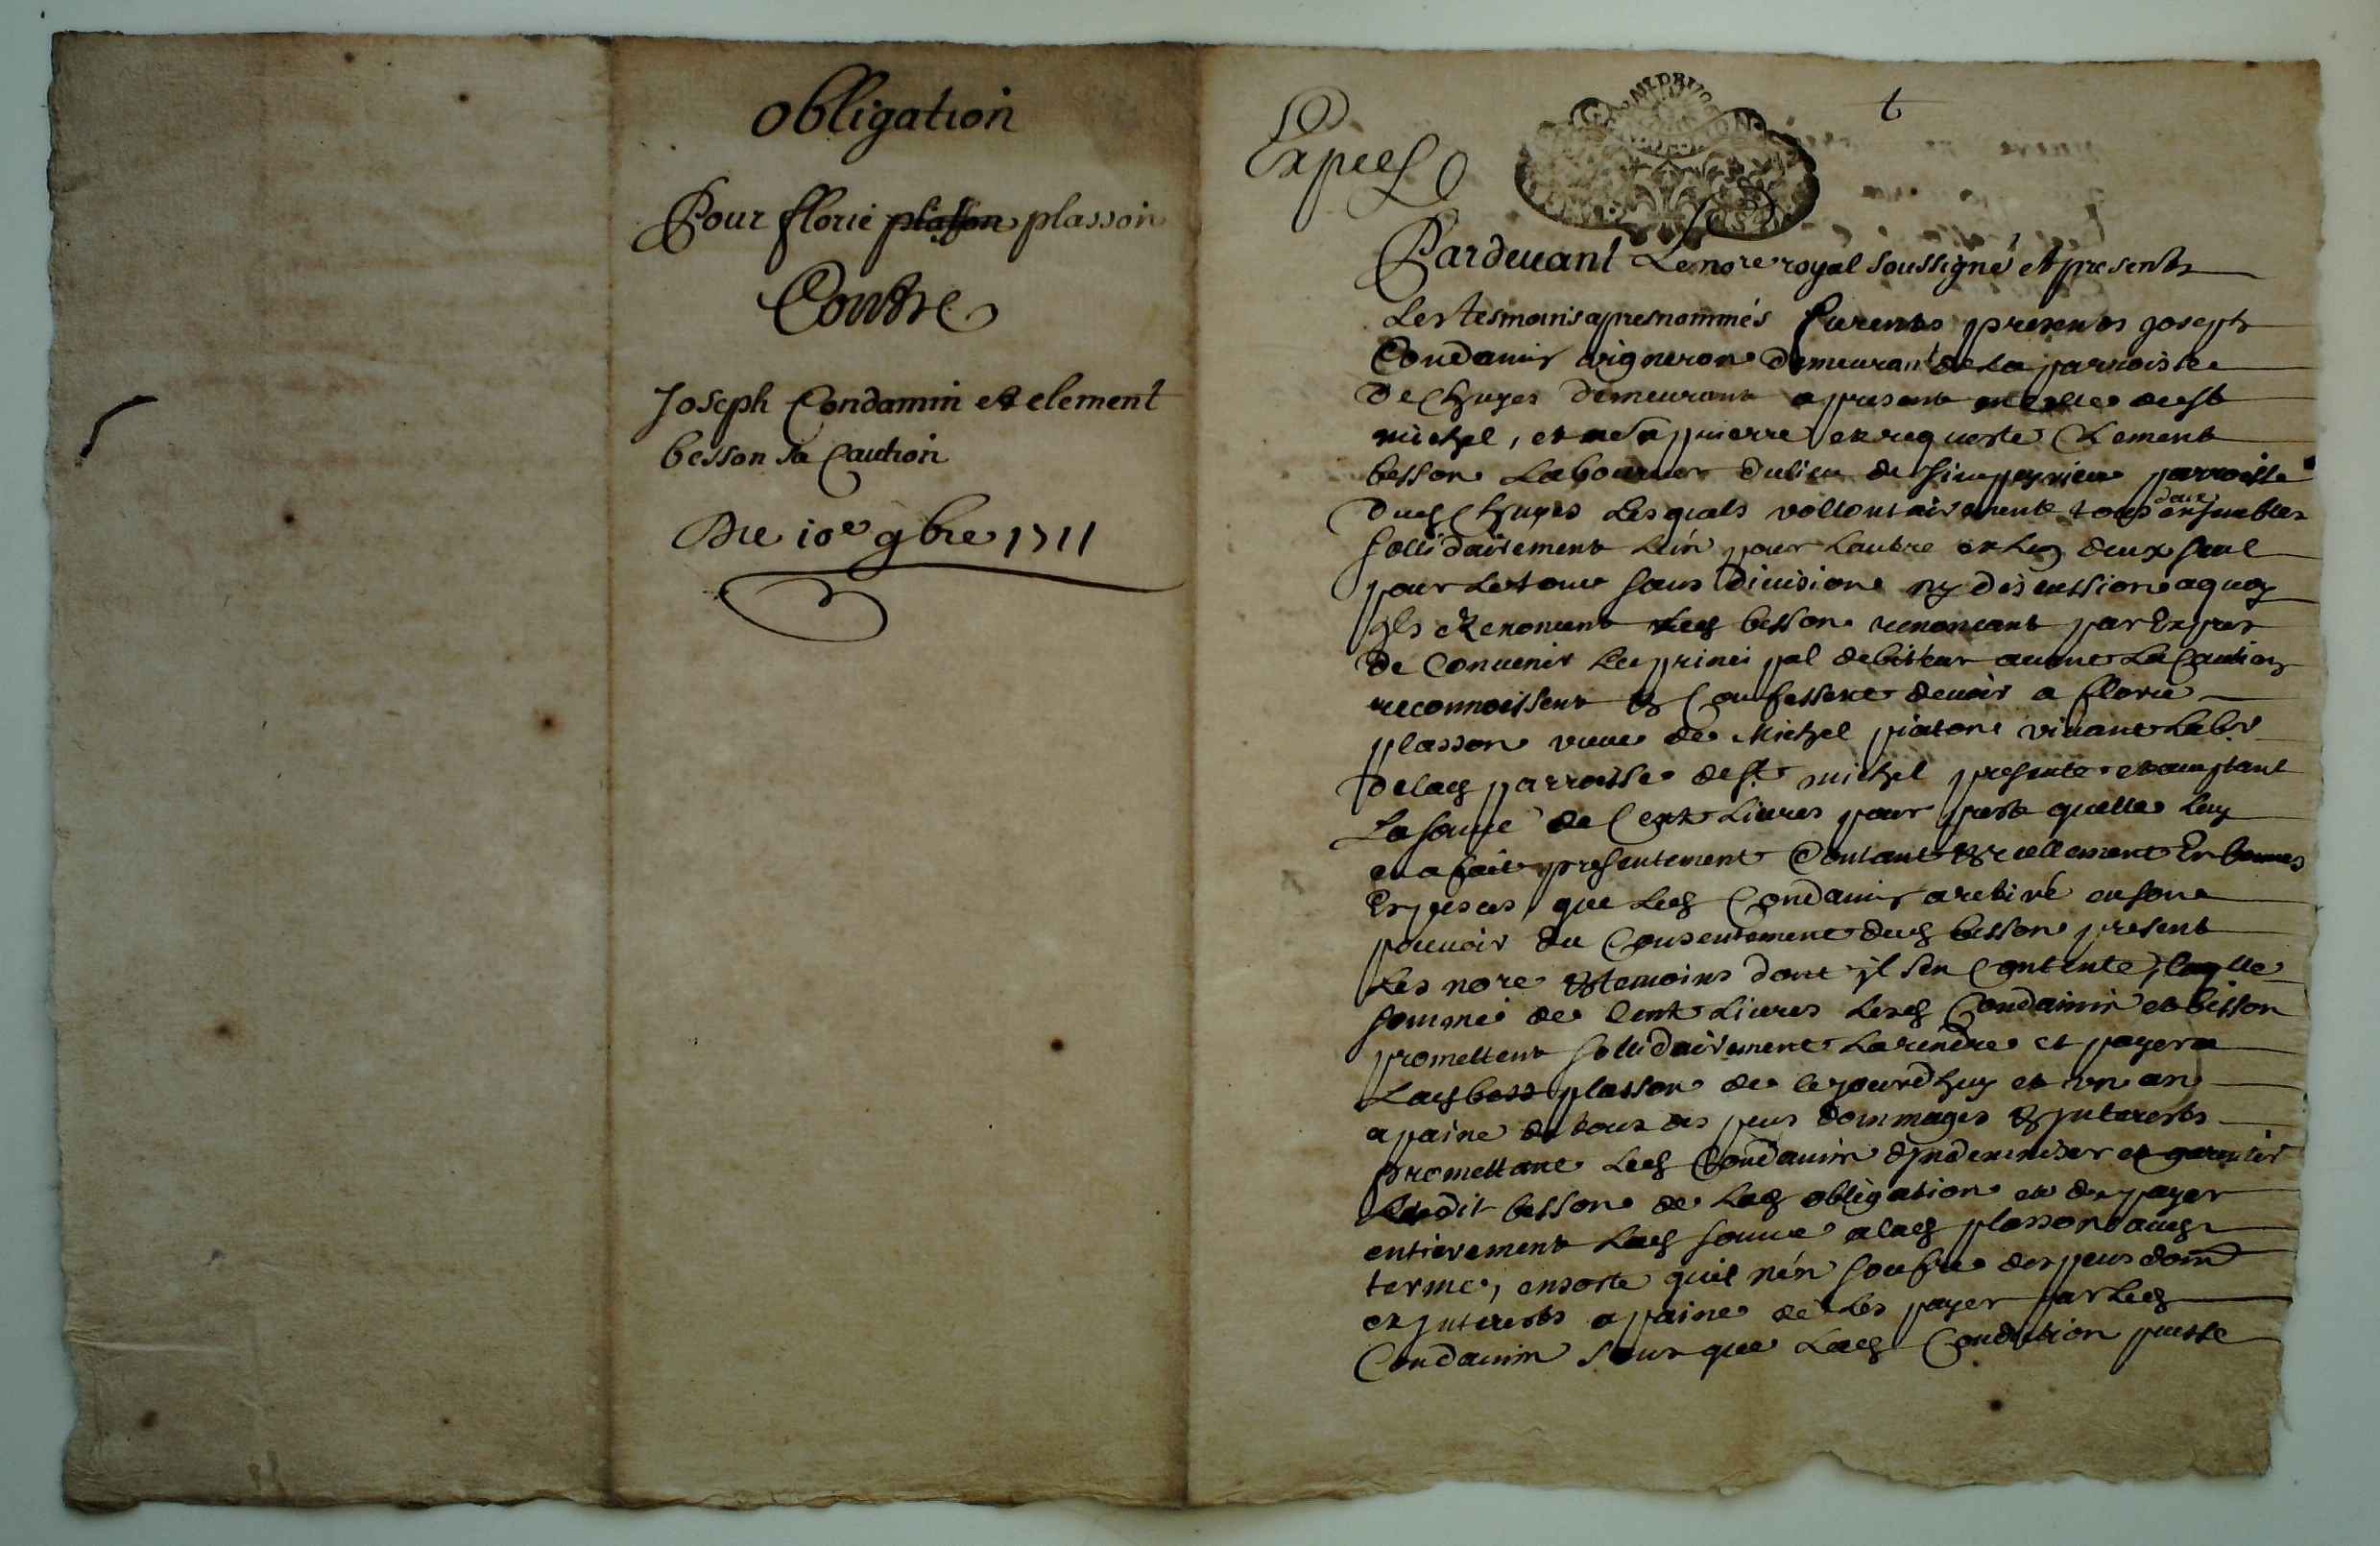 obligation
Pour florie plasson plasson
Contre
Joseph Condamin et clement
besson sa Caution
Du 10e 9bre 1711
Expees
t
Pardevant Le nore royal soussigné et presents
Les tesmoins apres nommés furents presents joseph
Condamin vigneron demeurant de la parroisse
De Chuyes demeurant a present en celle de st
michel, et a sa prierre et requeste Clement
besson Laboureur du lieu de parroisse
dud Chuyes Lesquels vollontairement tous deux ensembles
sollidairement lun pour lautre et lug deux seul
pour le tout sans division ny discussion a quoy
jls Renoncent Led besson renoncant par Expres
de Convenir Le principal debiteur avant La Caution
reconnoissent & Confessent devoir a florie
plasson veuve de Michel piaton vivant Labr
de lad parroisse de st michel presente et acceptant
La somme de Cent Livres pour prest quelle luy
en a fait presentement Contant & reellement En bonnes
Especes que Led Condamin a retiré en son
pouvoir du Consentement dud besson present
Les nore & temoins dont jl sen Contente, laqlle
somme de Cent Livres Lesd Condamin et besson
promettent sollidairement La rendre et payer a
Lad bess plasson de cejourdhuy et un an
a paine de tous des pens dommages & jnterests
promettant Led Condamin djndemniser et garentir
Ledit besson de Lad obligation et de payer
entierement Lad somme a lad plasson aud
terme, en sorte quil nén soufre des pens dom
et jnterests a paine de Les payer par Led
Condamin sans que Lad Condition puisse